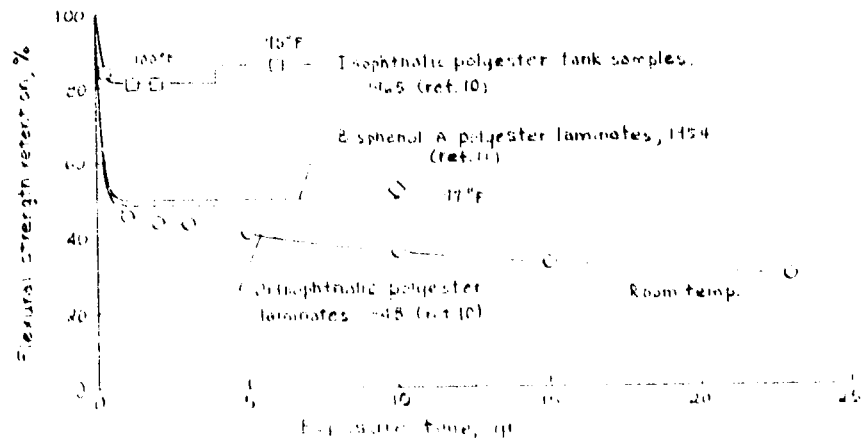 100
80
60
40
20
0
Flexural strength retention, %
100°F
75°F
Isophthalic polyester tank samples,
(ref. 10)
Bisphenol A polyester laminates, 1954
(ref. 11)
°F
Orthophthalic polyester
laminates (ref. 10)
Room temp.
0 5 10 15 20 25
Exposure time, yr